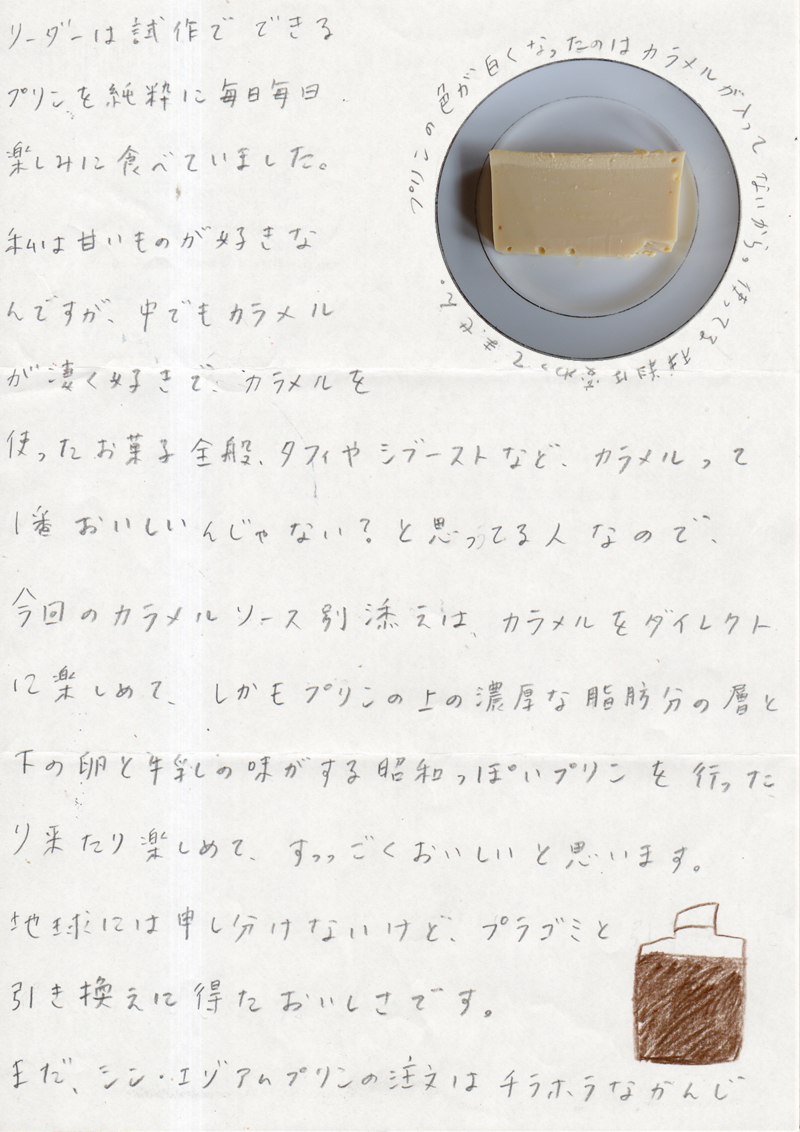 リーダーは試作でできる
プリンを純粋に毎日毎日
楽しみに食べていました。
私は甘いものが好きな
んですが、中でもカラメル
が凄く好きで、カラメルを
使ったお菓子全般、タフィやシブーストなど、カラメルって
1番おいしいんじゃない？と思ってる人なので、
今回のカラメルソース別添えは、カラメルをダイレクト
に楽しめて、しかもプリンの上の濃厚な脂肪分の層と
下の卵と牛乳の味がする昭和っぽいプリンを行った
り来たり楽しめて、すっっごくおいしいと思います。
地球には申し分けないけど、プラゴミと
引き換えに得たおいしさです。
まだ、シン・エゾアムプリンの注文はチラホラなかんじ
プリンの色が白くなったのはカラメルが入ってないから。使ってる材料は変わってません。